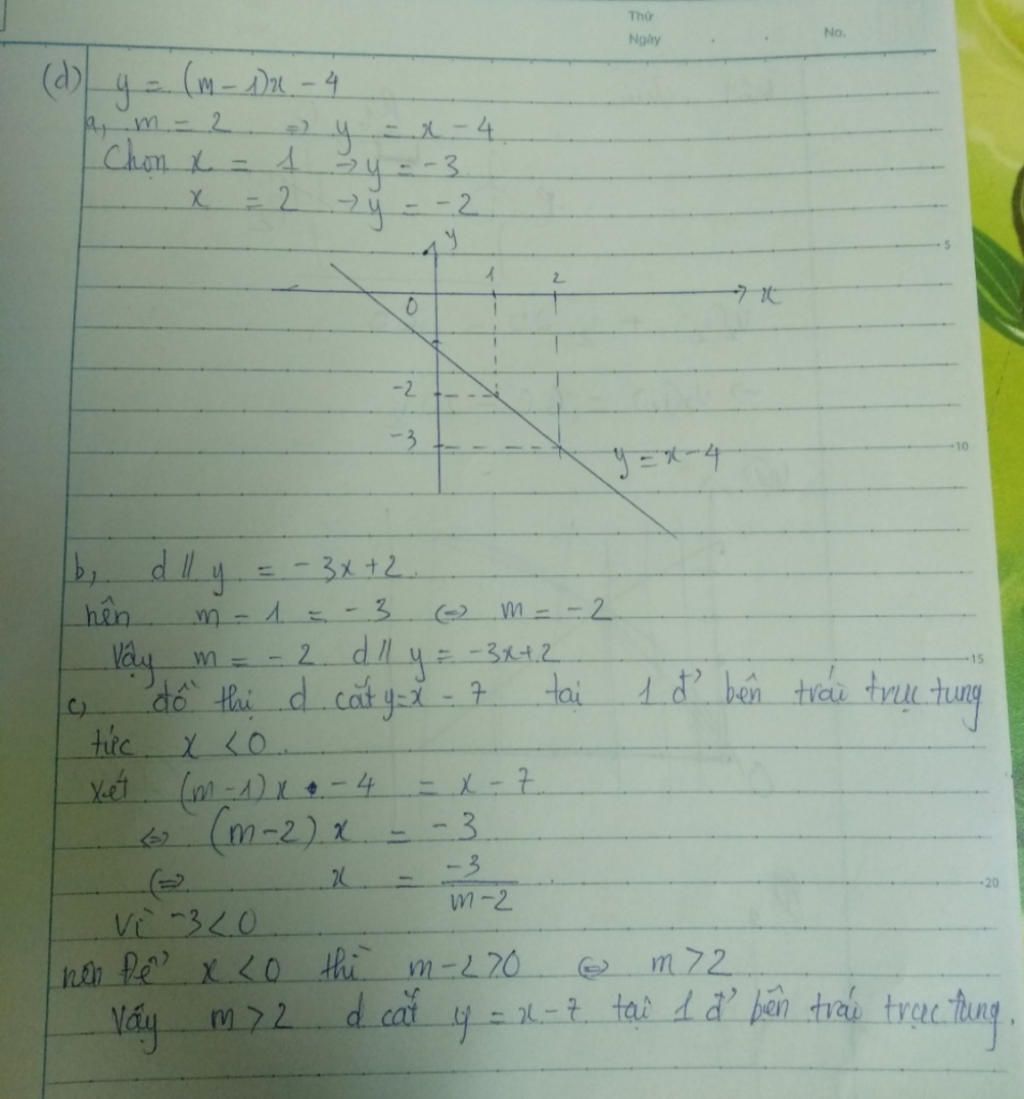 Thứ
Ngày . . No.
(d) y = (m-1)x - 4
a, m = 2 => y = x - 4
Chọn x = 1 → y = -3
x = 2 → y = -2
y
5
1 2
0 x
-2
-3
10
y = x - 4
b, d // y = -3x + 2
nên m - 1 = -3 <=> m = -2
Vậy m = -2 d // y = -3x + 2
15
c, đồ thị d cắt y = x - 7 tại 1 đ' bên trái trục tung
tức x < 0
xét (m-1)x - 4 = x - 7
<=> (m-2)x = -3
<=> x = -3/(m-2)
20
Vì -3 < 0
nên Để x < 0 thì m - 2 > 0 <=> m > 2
Vậy m > 2 d cắt y = x - 7 tại 1 đ' bên trái trục tung.